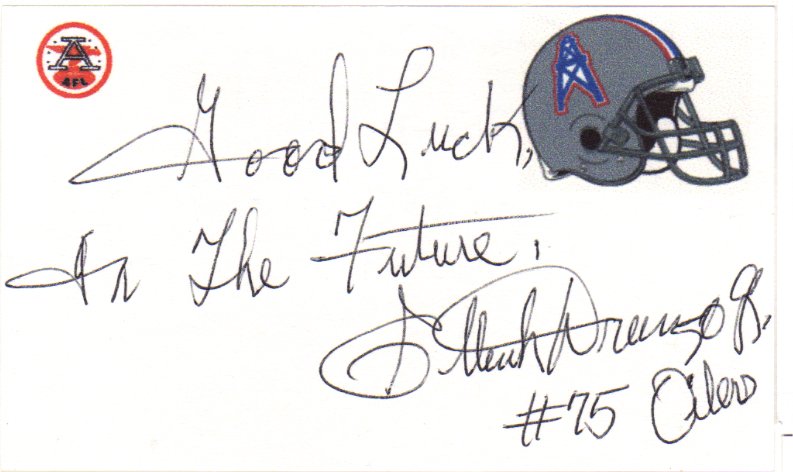 A
AFL
Good Luck,
In The Future,
Elbert Drungo Jr.
#75 Oilers